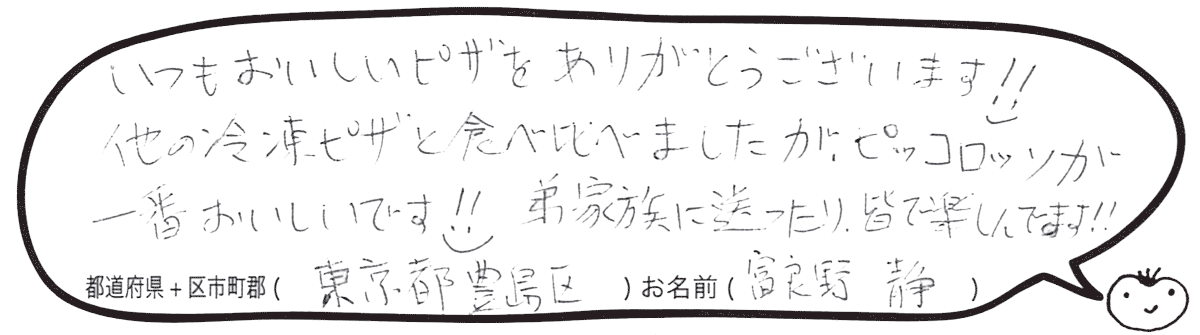 いつもおいしいピザをありがとうございます!!
他の冷凍ピザと食べ比べましたが、ピッコロッソが
一番おいしいです!! 弟家族に送ったり、皆で楽しんでます!!
都道府県+区市町郡( 東京都豊島区 )お名前( 富良野 静 )